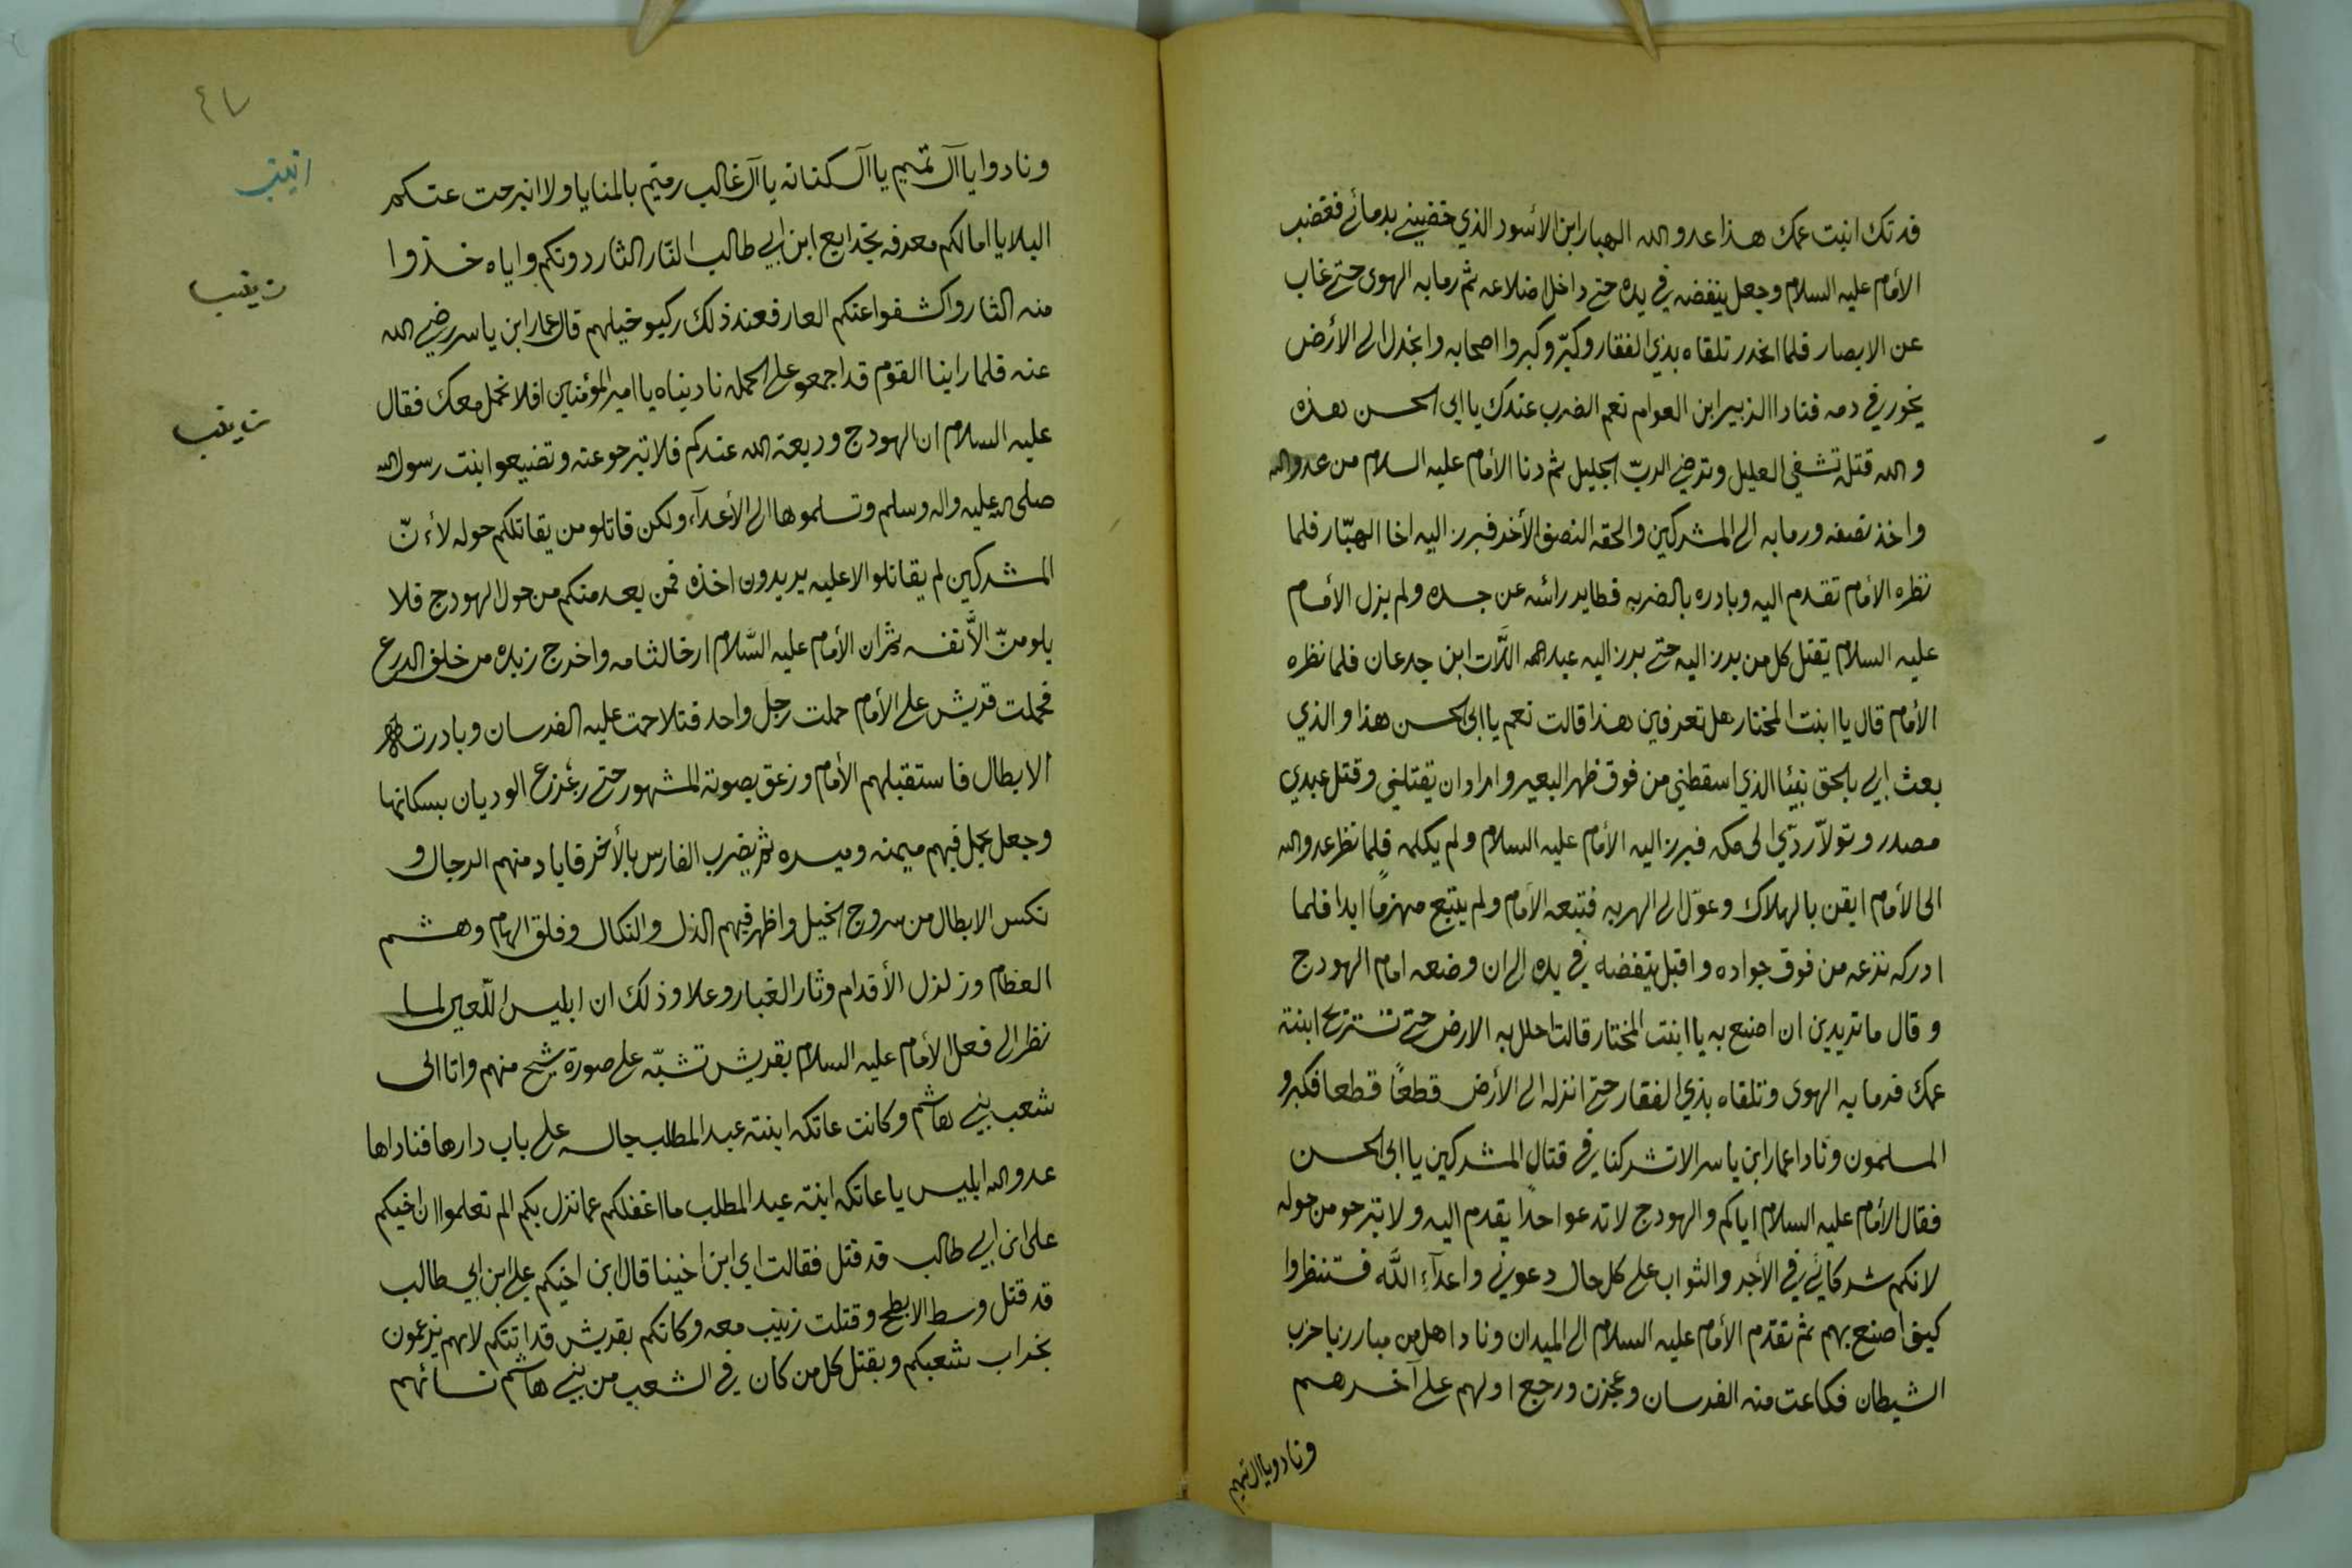 فدتك ابنت عمك هذا عدو الله الهبار ابن الأسود الذي خضبني بدمائي فغضب
الأمام عليه السلام وجعل ينفضه في يده حتى داخل اضلاعه ثم رما به الهوى حتى غاب
عن الابصار فلما انحدر تلقاه بذي الفقار وكبّر وكبروا اصحابه وانجدل الى الأرض
يخور في دمه فنادا الزبير ابن العوام نعم الضرب عندك يا ابى الحسن هذه
والله قتلة تشفي العليل وترضي الربّ الجليل ثم دنا الأمام عليه السلام من عدو الله
واخذ نصفه ورما به الى المشركين والحقه النصف الأخر فبرز اليه اخا الهبّار فلما
نظره الأمام تقدم اليه وبادره بالضربه فطاير رائسه عن جسده ولم يزل الأمام
عليه السلام يقتل كل من برز اليه حتى برز اليه عبد اللّات ابن جدعان فلما نظره
الأمام قال يا ابنت المختار هل تعرفين هذا قالت نعم يا ابى الحسن هذا والذي
بعث ابي بالحق نبيًا الذي اسقطني من فوق ظهر البعير واراد ان يقتلني وقتل عبدي
مصدر وتولاّ ردّي الى مكه فبرز اليه الأمام عليه السلام ولم يكلمه فلما نظر عدو الله
الى الأمام ايقن بالهلاك وعوّل الى الهربه فتبعه الأمام ولم يتبع مهزمًا ابدا فلما
ادركه نزعه من فوق جواده واقبل ينفضه في يده الى ان وضعه امام الهودج
وقال ما تريدين ان اصنع به يا ابنت المختار قالت احلل به الارض حتى تستريح ابنتة
عمك فرما به الهوى وتلقاه بذي الفقار حتى انزله الى الأرض قطعًا قطعا فكبرو
المسلمون ونادا عمار ابن ياسر الا تشركنا في قتال المشركين يا ابى الحسن
فقال الأمام عليه السلام اياكم والهودج لا تدعوا احدًا يقدم اليه ولا تبرحو من حوله
لانكم شركائي في الأجر والثواب على كل حال دعوني واعدآءِ اللّٰه فستنظروا
كيف اصنع بهم ثم تقدّم الأمام عليه السلام الى الميدان ونادا هل من مبارز يا حزب
الشيطان فكاعت منه الفرسان وعجزت ورجع اولهم على آخرهم
ونادو يا ال تميم
٤٧
ونادوا يا آل تميم يا آل كنانه يا آل غالب رميتم بالمنايا ولا انبرحت عنكم
البلايا امالكم معرفه بخدايع ابن ابي طالب الثّار الثار دونكم واياه خذوا
منه الثار واكشفوا عنكم العار فعند ذلك ركبو خيلهم قال عمار ابن ياسر رضي الله
عنه فلما راينا القوم قد اجمعو على الحمله ناديناه يا امير المؤمنين افلا نحمل معك فقال
عليه السلام ان الهودج وديعة الله عندكم فلا تبرحو عنه وتضيعو ابنت رسول الله
صلى الله عليه واله وسلم وتسلموها الى الأعدآء ولكن قاتلو من يقاتلكم حوله لأنّ
المشركين لم يقاتلو الا عليه يريدون اخذه فمن بعد منكم من حول الهودج فلا
يلومنّ الاّ نفسه ثم ان الأمام عليه السّلام ارخا لثامه واخرج زنده من خلف الدرع
فحملت قريش على الأمام حملت رجل واحد فتلاحمت عليه الفرسان وبادرت
الابطال فاستقبلهم الأمام وزعق بصوتة المشهور حتى زعزع الوديان بسكانها
وجعل يحمل فيهم ميمنه وميسره ثم يضرب الفارس بالأخر فاباد منهم الرجال و
نكس الابطال من سروج الخيل واظهر فيهم الذل والنكال وفلق الهام وهشم
العظام وزلزل الأقدام وثار الغبار وعلا وذلك ان ابليس اللّعين لما
نظر الى فعل الأمام عليه السلام بقريش تشبّه على صورة شيخ منهم واتا الى
شعب بني هاشم وكانت عاتكه ابنتة عبد المطلب جالسه على باب دارها فناداها
عدو الله ابليس يا عاتكه ابنتة عبد المطلب ما اغفلكم عما نزل بكم الم تعلموا ان اخيكم
على ابن ابي طالب قد قتل فقالت اي ابن اخينا قال ابن اخيكم علي ابن ابي طالب
قد قتل وسط الابطح وقتلت زينب معه وكانكم بقريش قد اتتكم لانهم يزعمون
بخراب شعبكم وبقتل كل من كان في الشعب من بني هاشم نسائهم